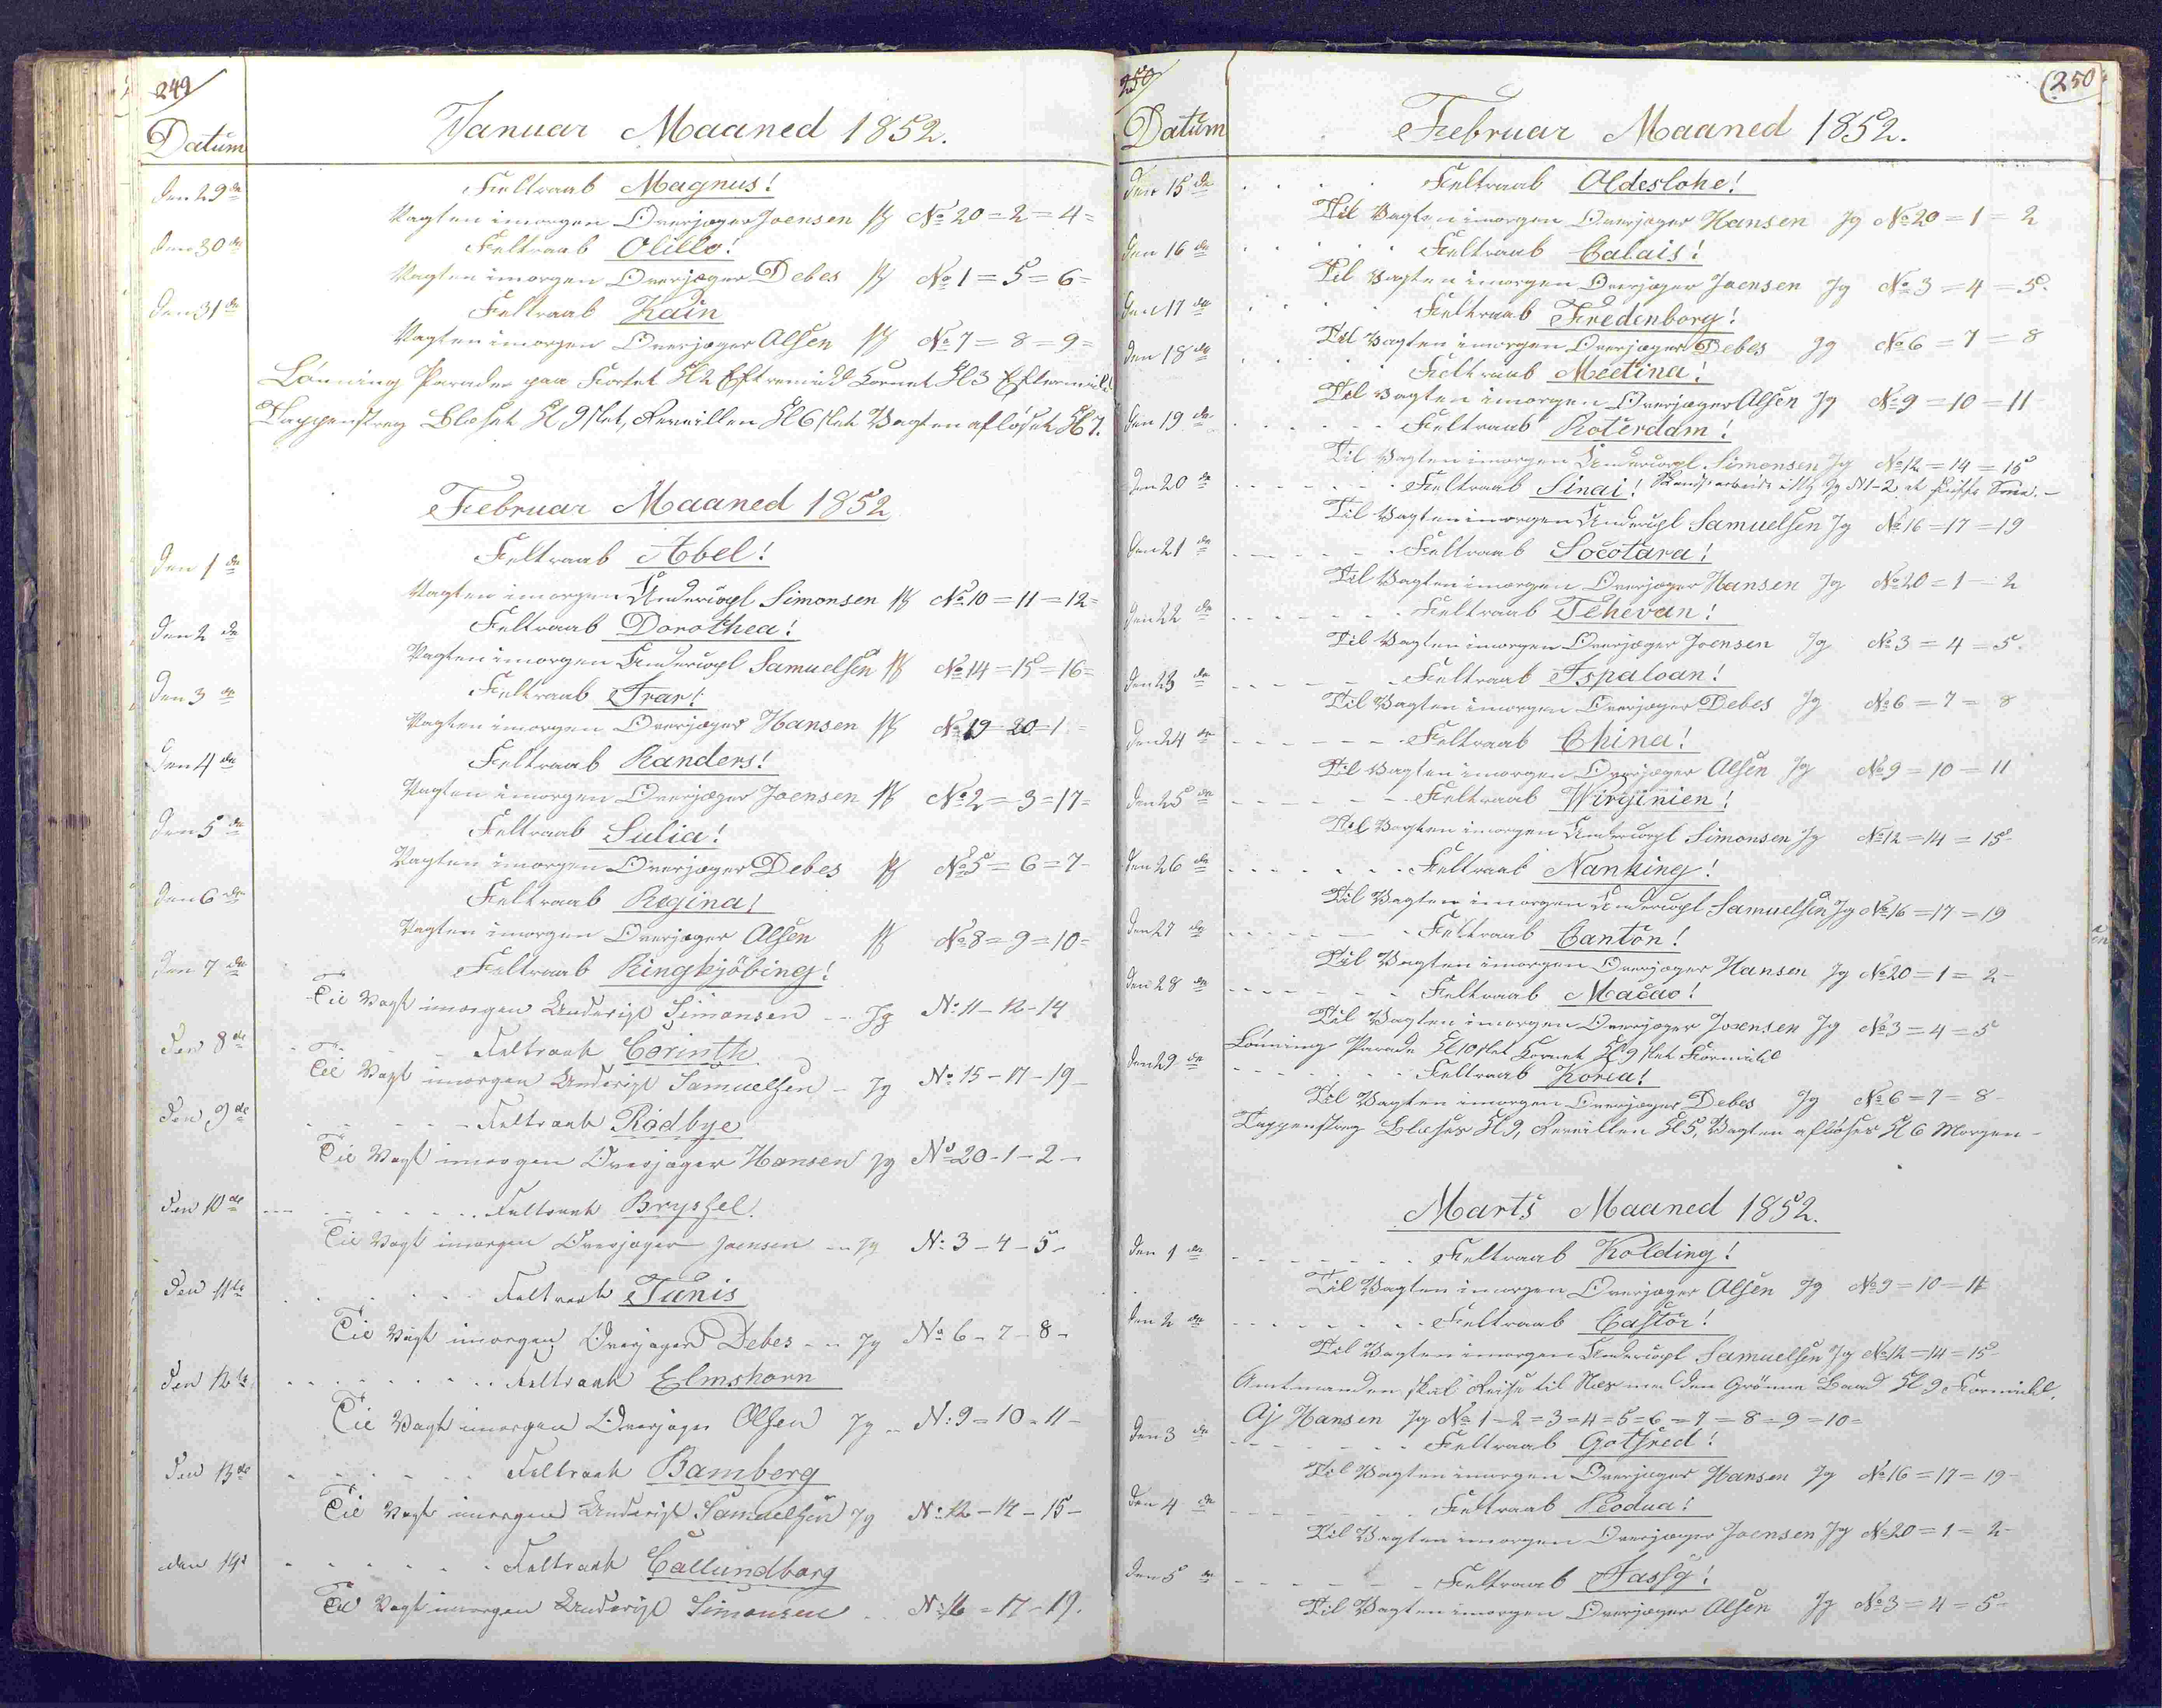 249
Datum
Januar Maaned 1852.
den 29de
Feltraab Magnus!
Vagten imorgen Overjæger Joensen Jg No 20=2=4=
den 30de
Feltraab Olillo!
Vagten imorgen Overjæger Debes Jg No 1=5=6=
den 31de
Feltraab Kain
Vagten imorgen Overjæger Olsen Jg No 7=8=9=
Lønning Parade paa Fortet Kl 2 Eftermidd Kornet Kl 3 Eftermidd
Tappenstreg Blæset Kl 9 slet, Reveillen Kl 6 slet Vagten afløset Kl 7.
Februar Maaned 1852
den 1de
Feltraab Abel!
Vagten imorgen Undercorpl Simonsen Jg No 10=11=12=
den 2de
Feltraab Dorothea!
Vagten imorgen Undercorpl Samuelsen Jg No 14=15=16=
den 3de
Feltraab Ivar!
Vagten imorgen Overjæger Hansen Jg No 19=20=1=
den 4de
Feltraab Randers!
Vagten imorgen Overjæger Joensen Jg No 2=3=17=
den 5de
Feltraab Julia!
Vagten imorgen Overjæger Debes Jg No 5=6=7-
den 6de
Feltraab Regina!
Vagten imorgen Overjæger Olsen Jg No 8=9=10=
den 7de
Feltraab Ringkjöbing!
Til Vagt imorgen Undercpl Simonsen - Jg No 11-12-14
den 8de
Feltraab Corinth
Til Vagt imorgen Undercpl Samuelsen - Jg No 15-17-19-
den 9de
Feltraab Rödbye
Til Vagt imorgen Overjæger Hansen Jg No 20-1-2-
den 10de
Feltraab Bryssel.
Til Vagt imorgen Overjæger Joensen - Jg No 3-4-5-
den 11te
Feltraab Tunis
Til Vagt imorgen Overjæger Debes - Jg No 6-7-8-
den 12te
Feltraab Elmshorn
Til Vagt imorgen Overjæger Olsen Jg - No 9-10-11-
den 13de
Feltraab Bamberg
Til Vagt imorgen Undercpl Samuelsen Jg No 12-14-15-
den 14d
Feltraab Callundborg
Til Vagt imorgen Undercpl Simonsen - No 16-17-19.
250
250
Datum
Februar Maaned 1852.
den 15de
Feltraab Oldeslohe!
Til Vagten imorgen Overjæger Hansen Jg No 20=1=2
den 16de
Feltraab Calais!
Til Vagten imorgen Overjæger Joensen Jg No 3=4=5.
den 17de
Feltraab Fredenborg!
Til Vagten imorgen Overjæger Debes Jg No 6=7=8
den 18de
Feltraab Meetina!
Til Vagten imorgen Overjæger Olsen Jg No 9=10=11
den 19de
Feltraab Roterdam!
Til Vagten imorgen Undercorpl Simonsen Jg No 12=14=15
den 20de
Feltraab Sinai! Jg No 1-2
Til Vagten imorgen Undercpl Samuelsen Jg No 16=17=19
den 21de
Feltraab Socotara!
Til Vagten imorgen Overjæger Hansen Jg No 20=1=2
den 22de
Feltraab Tehevan!
Til Vagten imorgen Overjæger Joensen Jg No 3=4=5.
den 23de
Feltraab Ispaloan!
Til Vagten imorgen Overjæger Debes Jg No 6=7=8
den 24de
Feltraab China!
Til Vagten imorgen Overjæger Olsen Jg No 9=10=11
den 25de
Feltraab Wirginien!
Til Vagten imorgen Undercorpl Simonsen Jg No 12=14=15-
den 26de
Feltraab Nanking!
Til Vagten imorgen Undercorpl Samuelsen Jg No 16=17=19
den 27de
Feltraab Canton!
Til Vagten imorgen Overjæger Hansen Jg No 20=1=2-
den 28de
Feltraab Macao!
Til Vagten imorgen Overjæger Joensen Jg No 3=4=5
Lønning Parade Kl 10 slet Kornet Kl 9 slet Formidd
den 29de
Feltraab Korea!
Til Vagten imorgen Overjæger Debes Jg No 6=7=8-
Tappenstreg Blæses Kl 9, Reveillen Kl 5, Vagten afløses Kl 6 Morgen-
Marts Maaned 1852.
den 1de
Feltraab Kolding!
Til Vagten imorgen Overjæger Olsen Jg No 9=10=11
den 2de
Feltraab Castor!
Til Vagten imorgen Undercorpl Samuelsen Jg No 12=14=15-
Amtmanden skal Reise til Næs med den Grönne Baad Kl 9 Formidd.
Oj Hansen Jg No 1-2=3=4=5=6=7=8=9=10=
den 3de
Feltraab Gotfred!
Til Vagten imorgen Overjæger Hansen Jg No 16=17=19-
den 4de
Feltraab Peodua!
Til Vagten imorgen Overjæger Joensen Jg No 20=1=2-
den 5de
Feltraab Jassy!
Til Vagten imorgen Overjæger Olsen Jg No 3=4=5-